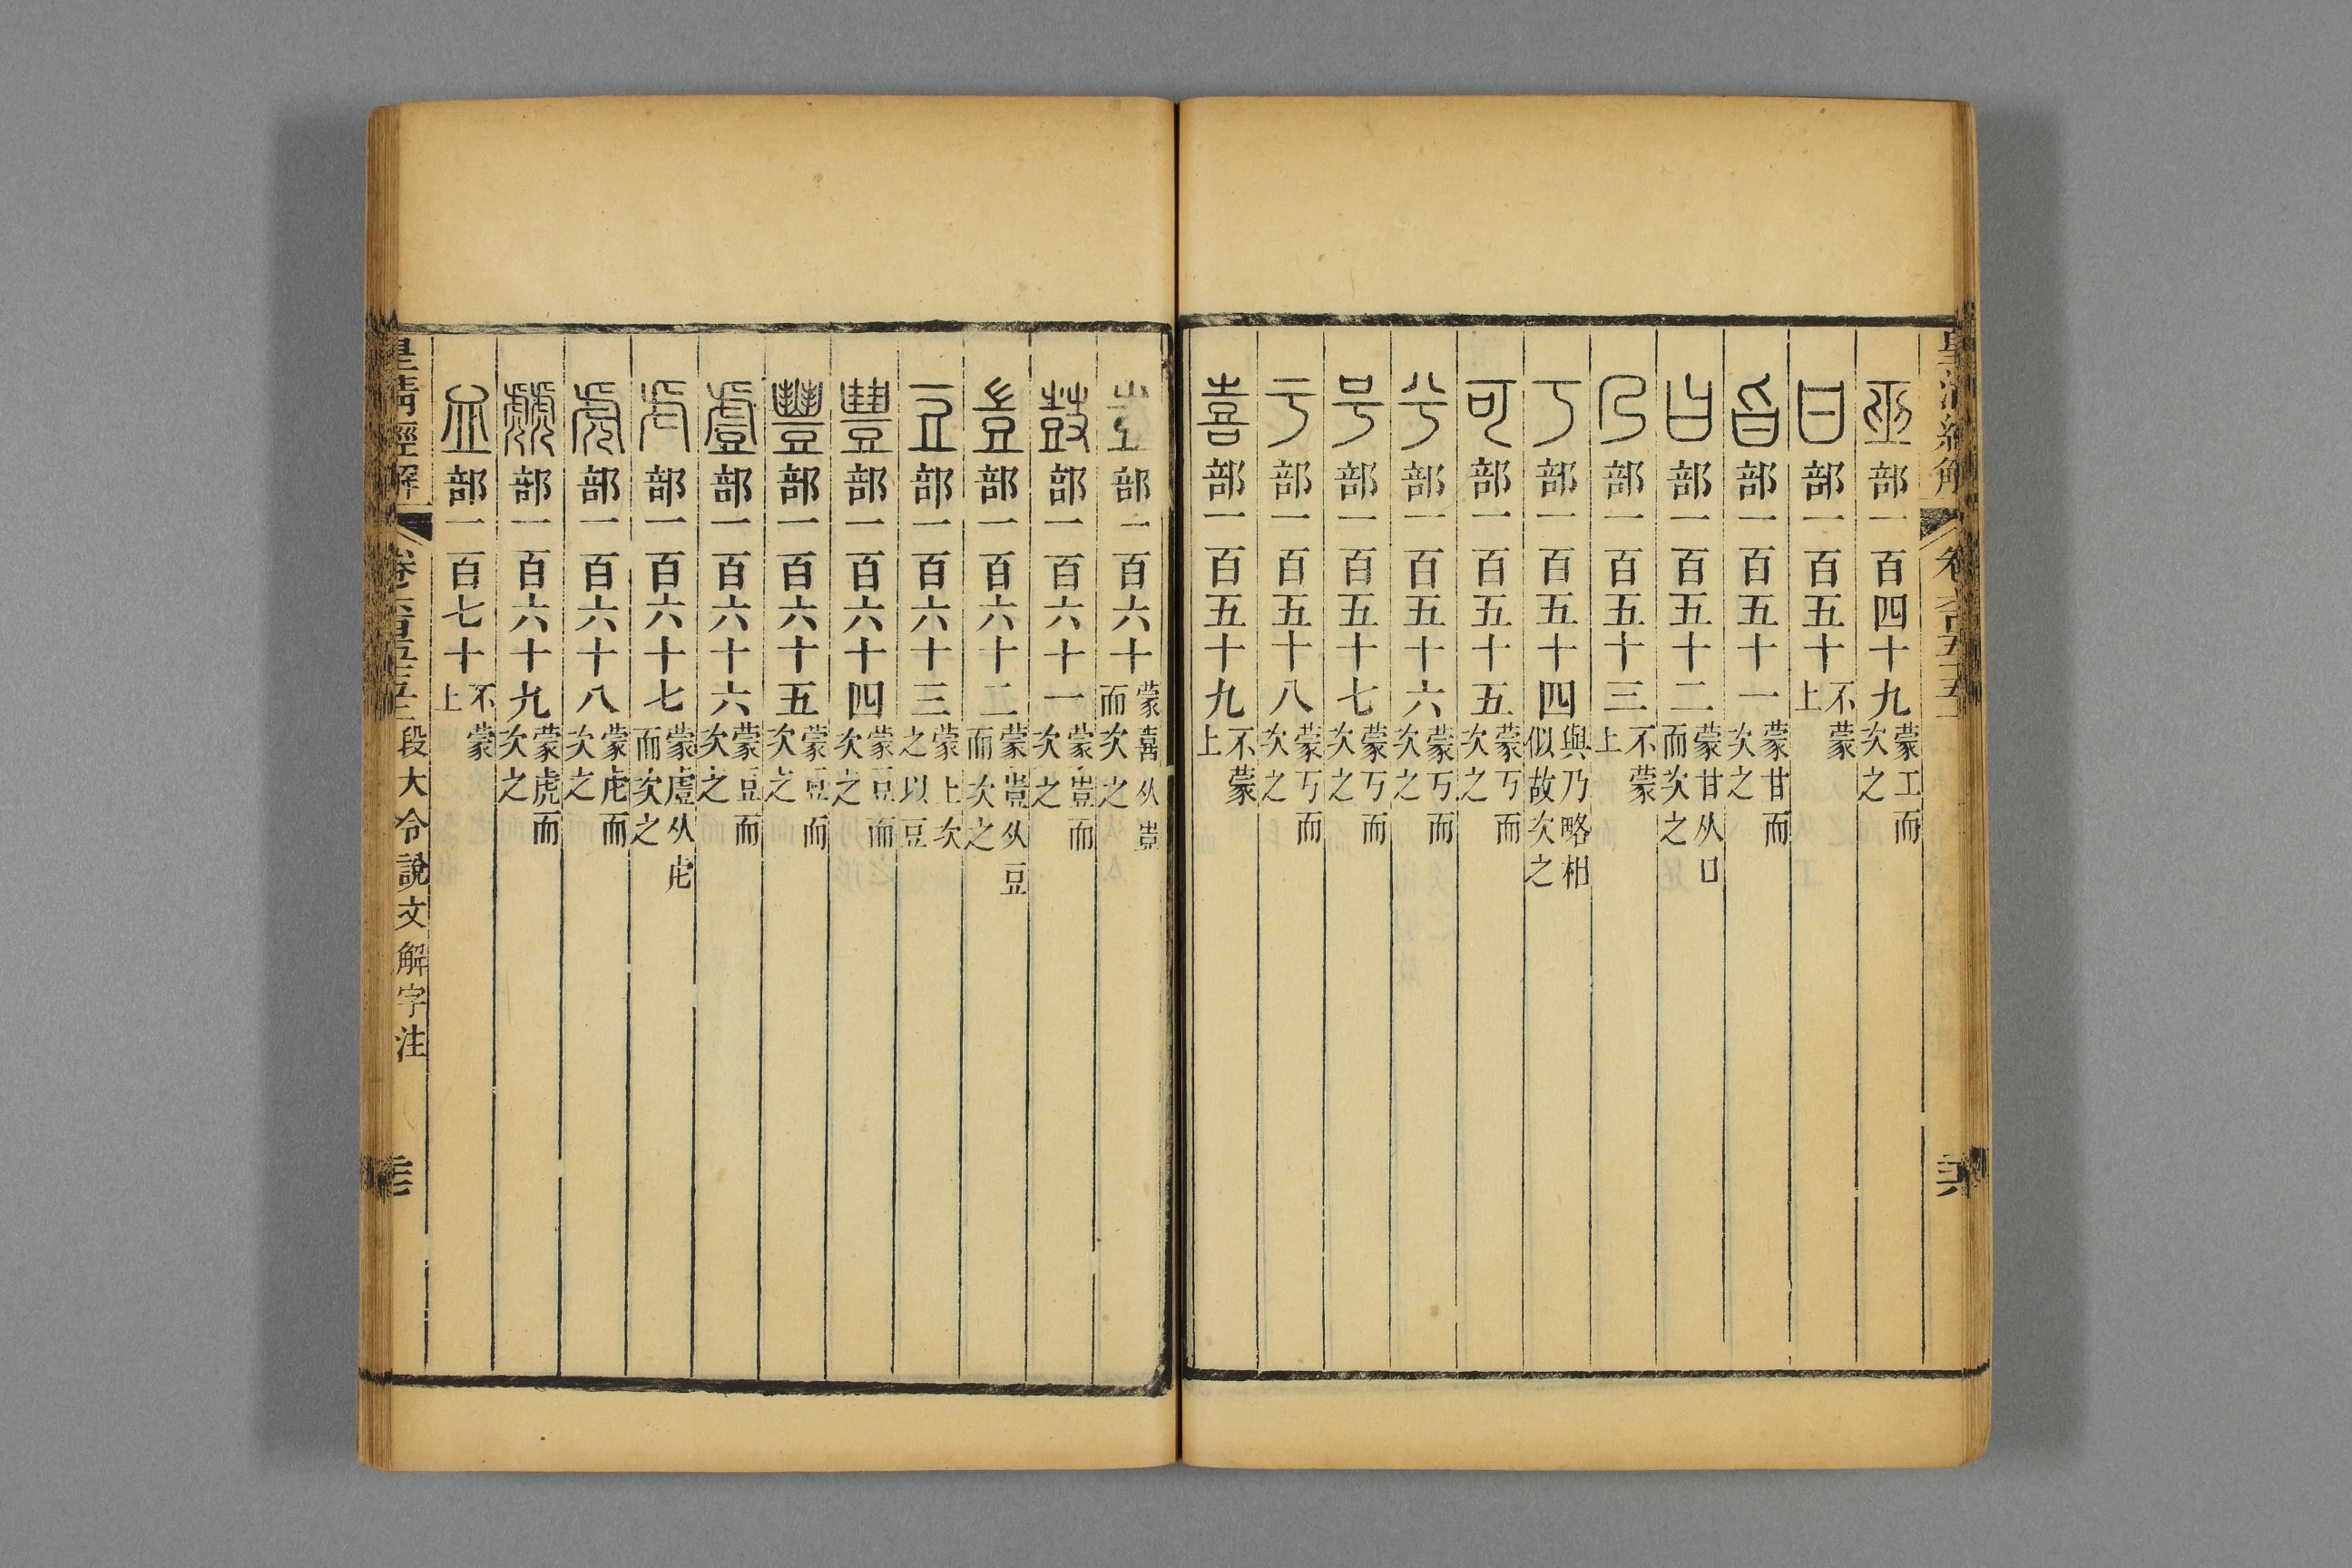 皇清經解 卷六百五十五
巫部一百四十九 蒙工而次之
甘部一百五十 不蒙上
旨部一百五十一 蒙甘而次之
曰部一百五十二 蒙甘从口而次之
乃部一百五十三 不蒙上
丂部一百五十四 與乃略相似故次之
可部一百五十五 蒙丂而次之
兮部一百五十六 蒙丂而次之
号部一百五十七 蒙丂而次之
亏部一百五十八 蒙丂而次之
喜部一百五十九 不蒙上
壴部一百六十 蒙喜从壴而次之
鼓部一百六十一 蒙壴而次之
豈部一百六十二 蒙壴从豆而次之
豆部一百六十三 蒙上次之以豆
豊部一百六十四 蒙豆而次之
豐部一百六十五 蒙豆而次之
䖒部一百六十六 蒙豆而次之
虍部一百六十七 蒙䖒从虍而次之
虎部一百六十八 蒙虍而次之
虤部一百六十九 蒙虎而次之
皿部一百七十 不蒙上
皇清經解 卷六百五十五 段大令說文解字注